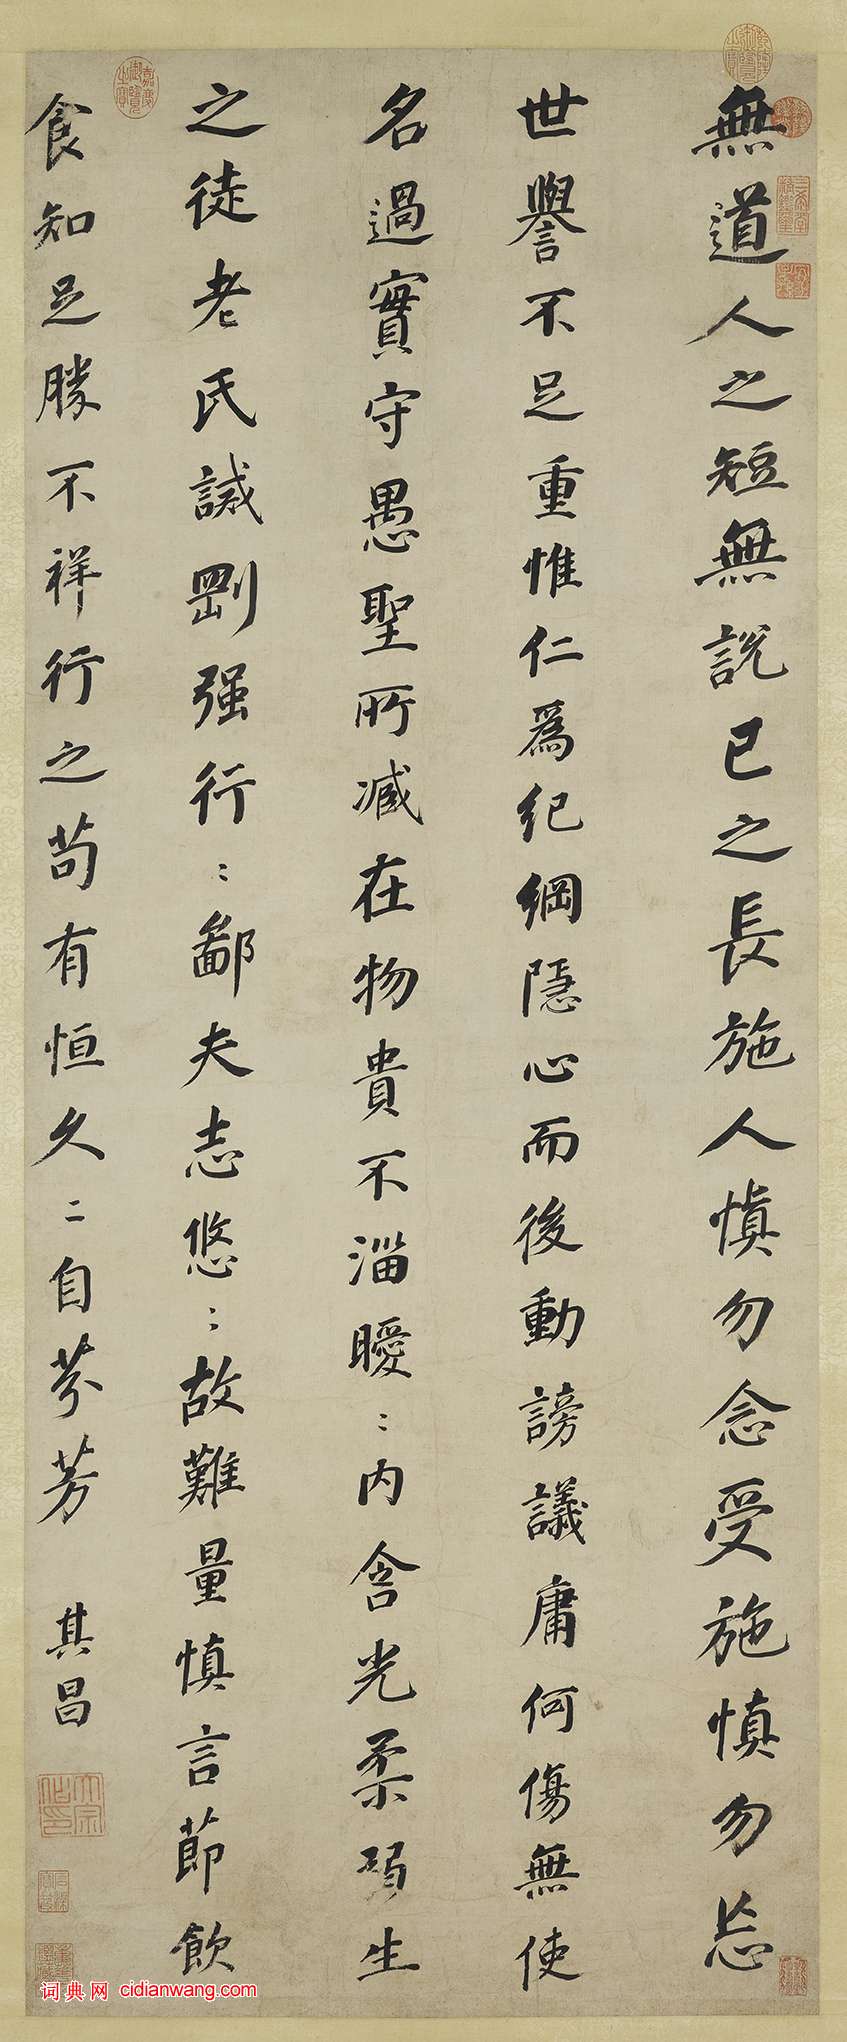 無道人之短無說己之長施人慎勿念受施慎勿忘
世譽不足重惟仁為紀綱隱心而後動謗議庸何傷無使
名過實守愚聖所臧在物貴不淄曖〻內含光柔弱生
之徒老氏誡剛强行〻鄙夫志悠〻故難量慎言節飲
食知足勝不祥行之苟有恒久〻自芬芳
其昌
词典网 cidianwang.com